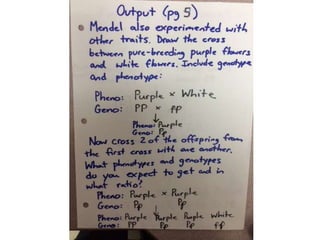 Output (pg 5)
Mendel also experimented with
other traits. Draw the cross
between pure-breeding purple flowers
and white flowers. Include genotype
and phenotype:
Pheno: Purple × White
Geno: PP × pp
↓
Pheno: Purple
Geno: Pp
Now cross 2 of the offspring from
the first cross with one another.
What phenotypes and genotypes
do you expect to get and in
what ratio?
Pheno: Purple × Purple
Geno: Pp Pp
↓
Pheno: Purple Purple Purple White
Geno: PP Pp Pp pp